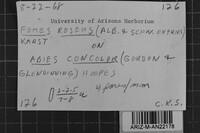 8-22-68 126
University of Arizona Herbarium
FOMES ROSEUS (ALB. & SCHW. EX FRIES)
KARST
ON
ABIES CONCOLOR (GORDON &
GLENDINNING) HOOPES
2-2.5
7-8 u 4 pores/mm
126 C.R.S.
ARIZ-M-AN22178